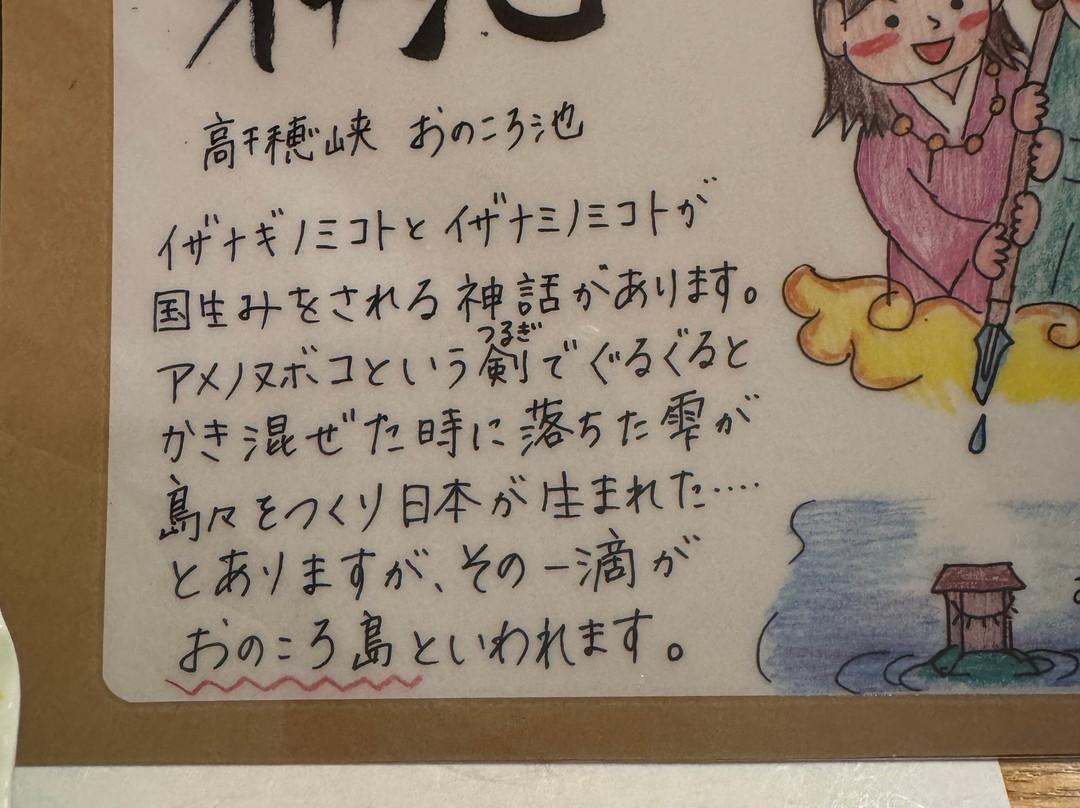 高千穂峡 おのころ池
イザナギノミコトとイザナミノミコトが
国生みをされる神話があります。
つるぎ
アメノヌボコという剣でぐるぐると
かき混ぜた時に落ちた雫が
島々をつくり日本が生まれた‥‥
とありますが、その一滴が
おのころ島といわれます。